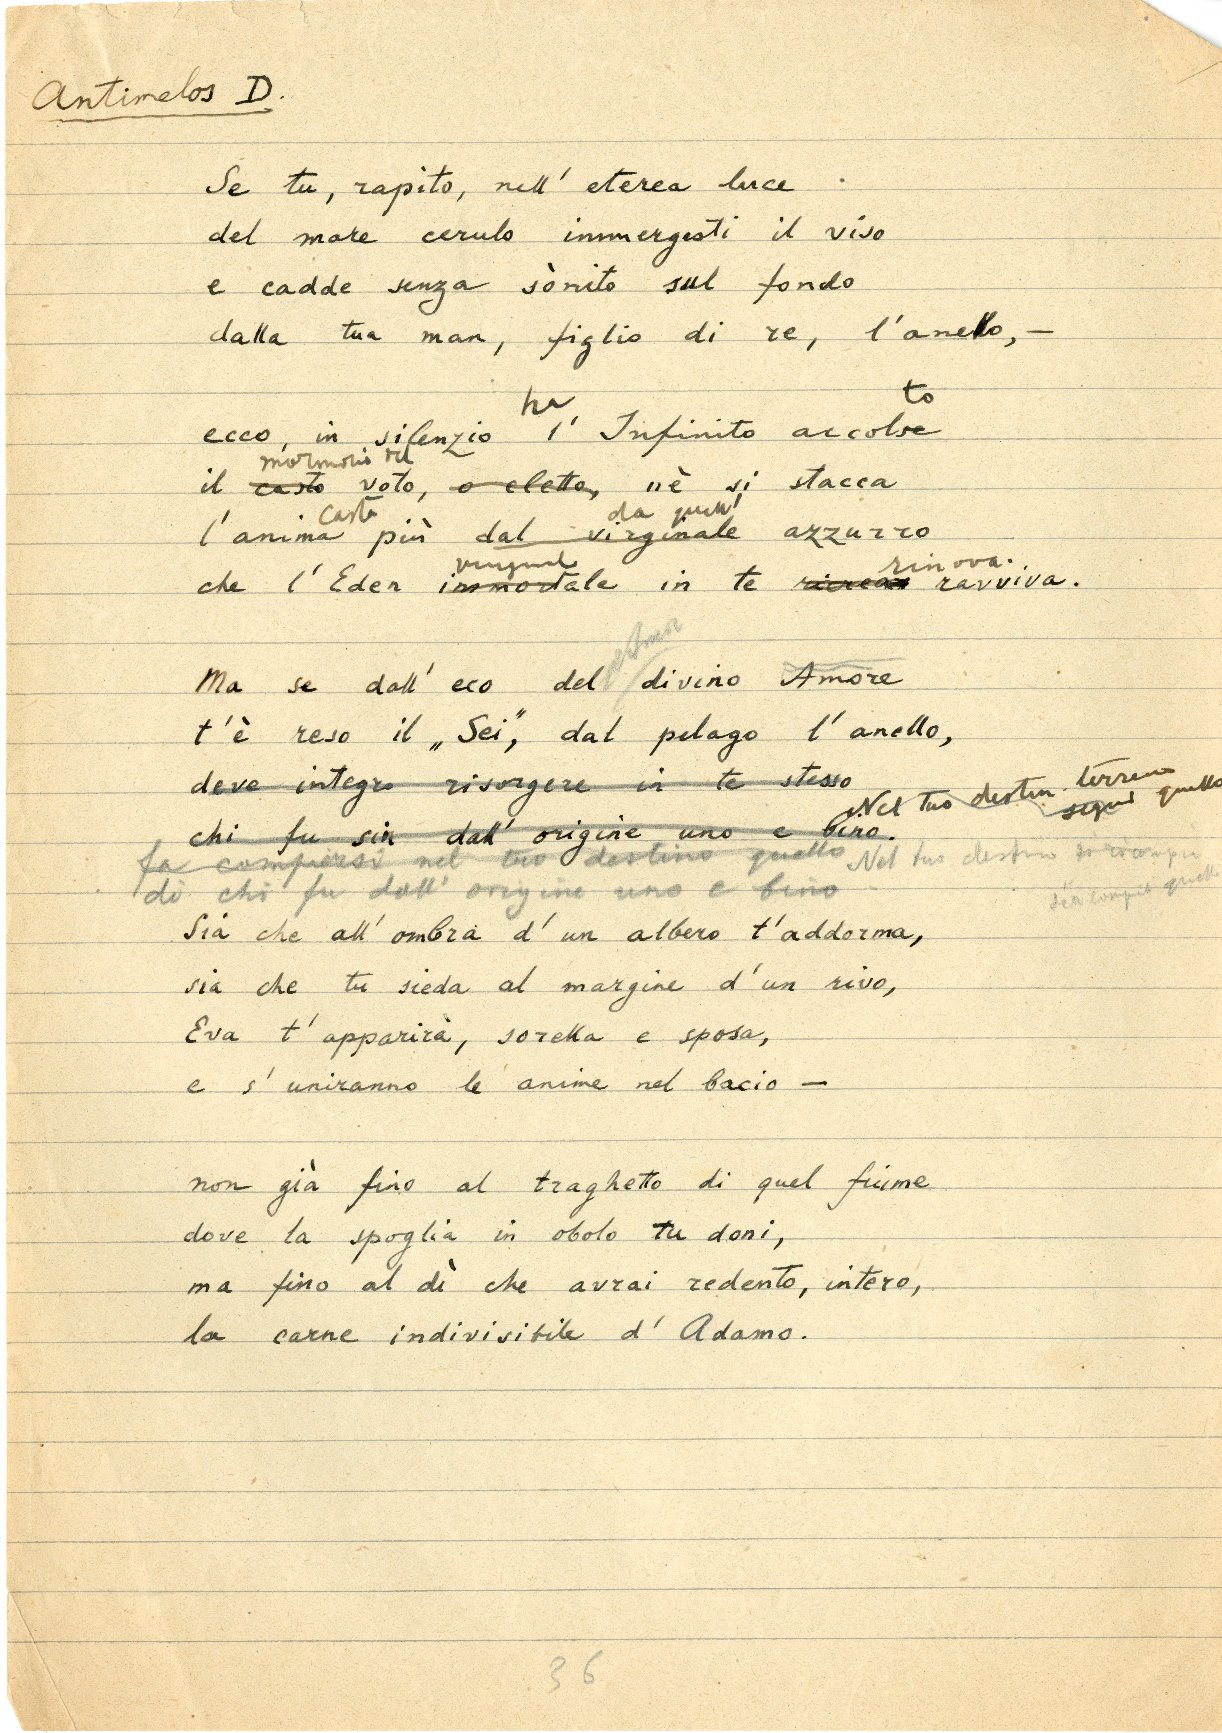 Antimelos D.
Se tu, rapito, nell' eterea luce
del mare cerulo immergesti il viso
e cadde senza sònito sul fondo
dalla tua man, figlio di re, l'anello,—
ha to
ecco, in silenzio l' Infinito accolse
mormorio del
il casto voto, o eletto, nè si stacca
casta da quell'
l'anima più dal virginale azzurro
virginal rinova.
che l'Eden immortale in te ricrea ravviva.
Ma se dall' eco del divino Amore
t'è reso il „Sei”, dal pelago l'anello,
deve integro risorgere in te stesso
Nel tuo destin terreno
segui quello
chi fu sin dall' origine uno e bino.
fa compiersi nel tuo destino quello
Nel tuo destino si
di chi fu dall' origine uno e bino
si compia quello
Sia che all' ombra d'un albero t'addorma,
sia che tu sieda al margine d'un rivo,
Eva t'apparirà, sorella e sposa,
e s'uniranno le anime nel bacio —
non già fino al traghetto di quel fiume
dove la spoglia in obolo tu doni,
ma fino al dì che avrai redento, intero,
la carne indivisibile d'Adamo.
36